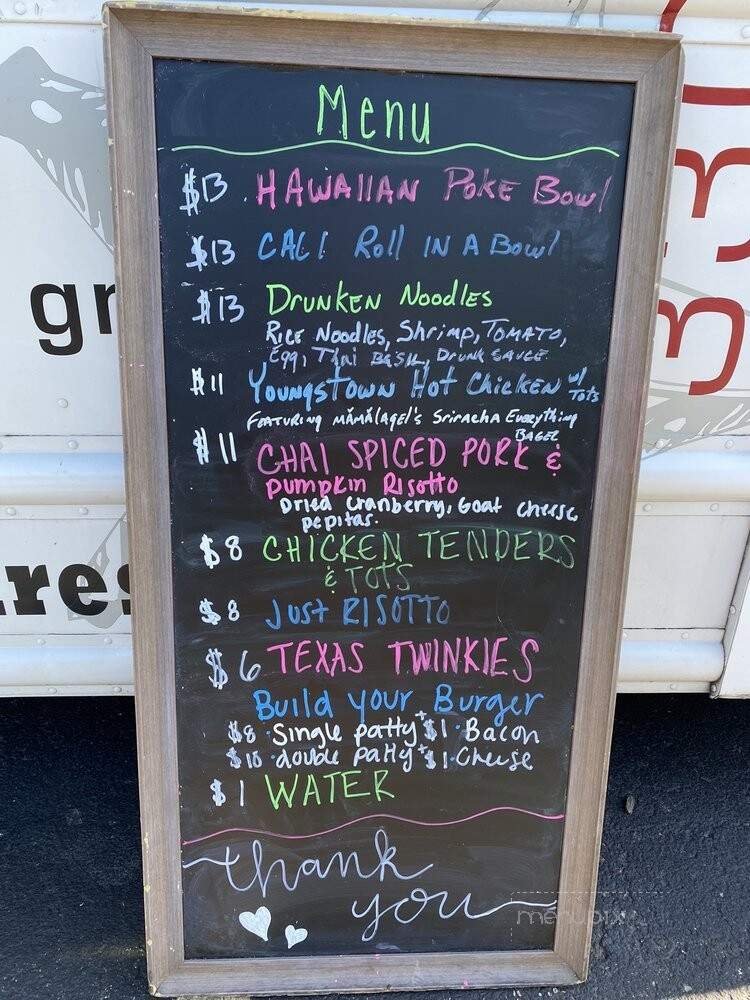 Menu
$13 HAWAIIAN POKE BOWL
$13 CALI Roll IN A BOWL
$13 DRUNKEN NOODLES
RICE NOODLES, SHRIMP, TOMATO,
EGG, THAI BASIL, DRUNK SAUCE
$11 YOUNGSTOWN HOT CHICKEN W/
TOTS
FEATURING MAMA(AGEL'S SRIRACHA EVERYTHING
BAGEL
$11 CHAI SPICED PORK &
PUMPKIN RISOTTO
Dried Cranberry, Goat Cheese
pepitas.
$8 CHICKEN TENDERS
& TOTS
$8 JUST RISOTTO
$6 TEXAS TWINKIES
Build your Burger
$8 · Single patty + $1 · Bacon
$10 · double patty + $1 · Cheese
$1 WATER
thank
you
menupix
gr
res
33